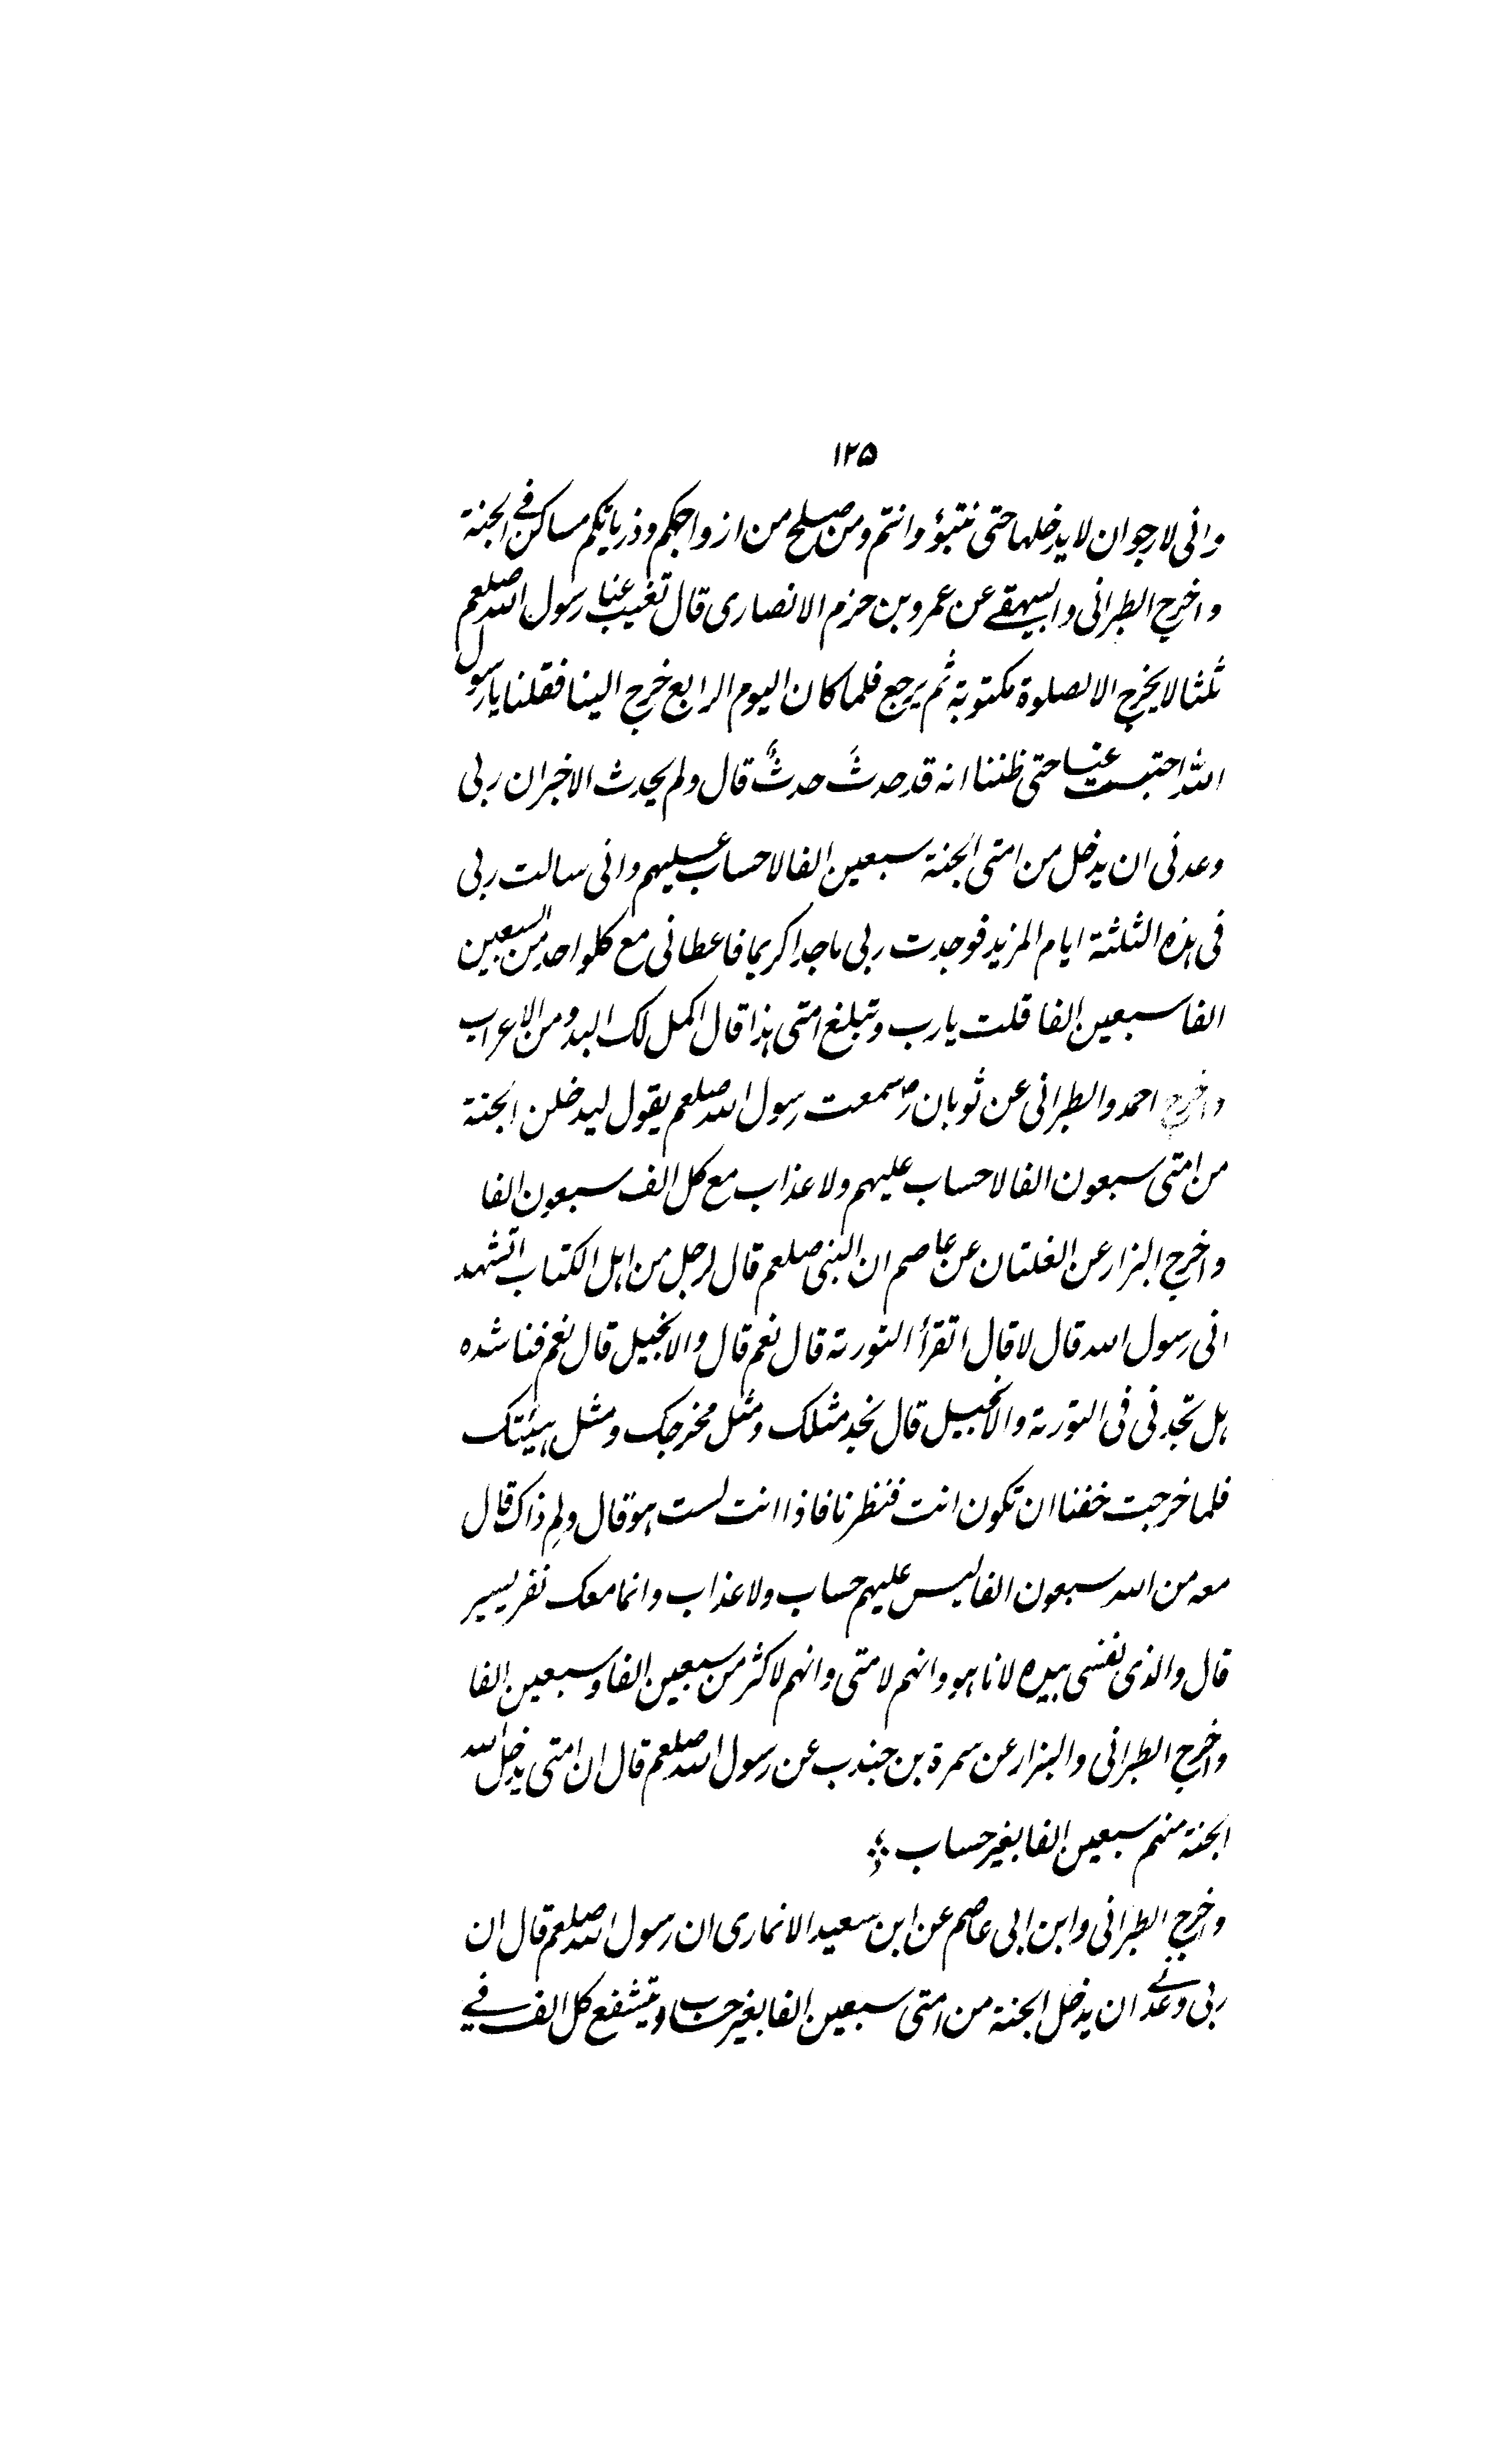 ۱۲۵
وانی لارجوان لا یدخلها حتی نتبوؤ وانتم ومن صلح من ازواجکم وذریاتکم مساکن فے الجنة
واخرج الطبرانی والبیهقے عن عمرو بن حزم الانصاری قال تغیب عنا رسول الله صلعم
ثلثا لا یخرج الا لصلوة مکتوبة ثم یرجع فلما کان الیوم الرابع خرج الینا فقلنا یا رسول
الله احتبست عنا حتی ظننا انه قد حدثَ حدثٌ قال ولم یحدث الا خیر ان ربی
وعدنی ان یدخل من امتی الجنة سبعین الفا لا حساب علیهم وانی سالت ربی
فی هذه الثلثة ایام المزید فوجدت ربی ماجدا کریما فاعطانی مع کلواحد من السبعین
الفا سبعین الفا قلت یا رب وتبلغ امتی هذا قال اکمل لک البدو من الاعراب
واخرج احمد والطبرانی عن ثوبان رض سمعت رسول الله صلعم یقول لیدخلن الجنة
من امتی سبعون الفا لا حساب علیهم ولا عذاب مع کل الف سبعون الفا
واخرج البزار عن الغلتان عن عاصم ان النبی صلعم قال لرجل من اهل الکتاب اتشهد
انی رسول الله قال لا قال اتقرأ التورىة قال نعم قال والانجیل قال نعم فناشده
هل تجدنی فی التورىة والانجیل قال نجد مثلک ومثل مخرجک ومثل هیئتک
فلما خرجت خفنا ان تکون انت فنظرنا فاذا انت لست هو قال ولِم ذاک قال
معه من الله سبعون الفا لیس علیهم حساب ولا عذاب وانما معک نفر یسیر
قال والذی نفسی بیده لانا هو وانهم لامتی وانهم لاکثر من سبعین الفا وسبعین الفا
واخرج الطبرانی والبزار عن سمرة بن جندب عن رسول الله صلعم قال ان امتی یدخل الله
الجنة منهم سبعین الفا بغیر حساب
واخرج الطبرانی وابن ابی عاصم عن ابن سعید الانماری ان رسول الله صلعم قال ان
ربی وعدنے ان یدخل الجنة من امتی سبعین الفا بغیر حساب ویتشفع کل الف فے